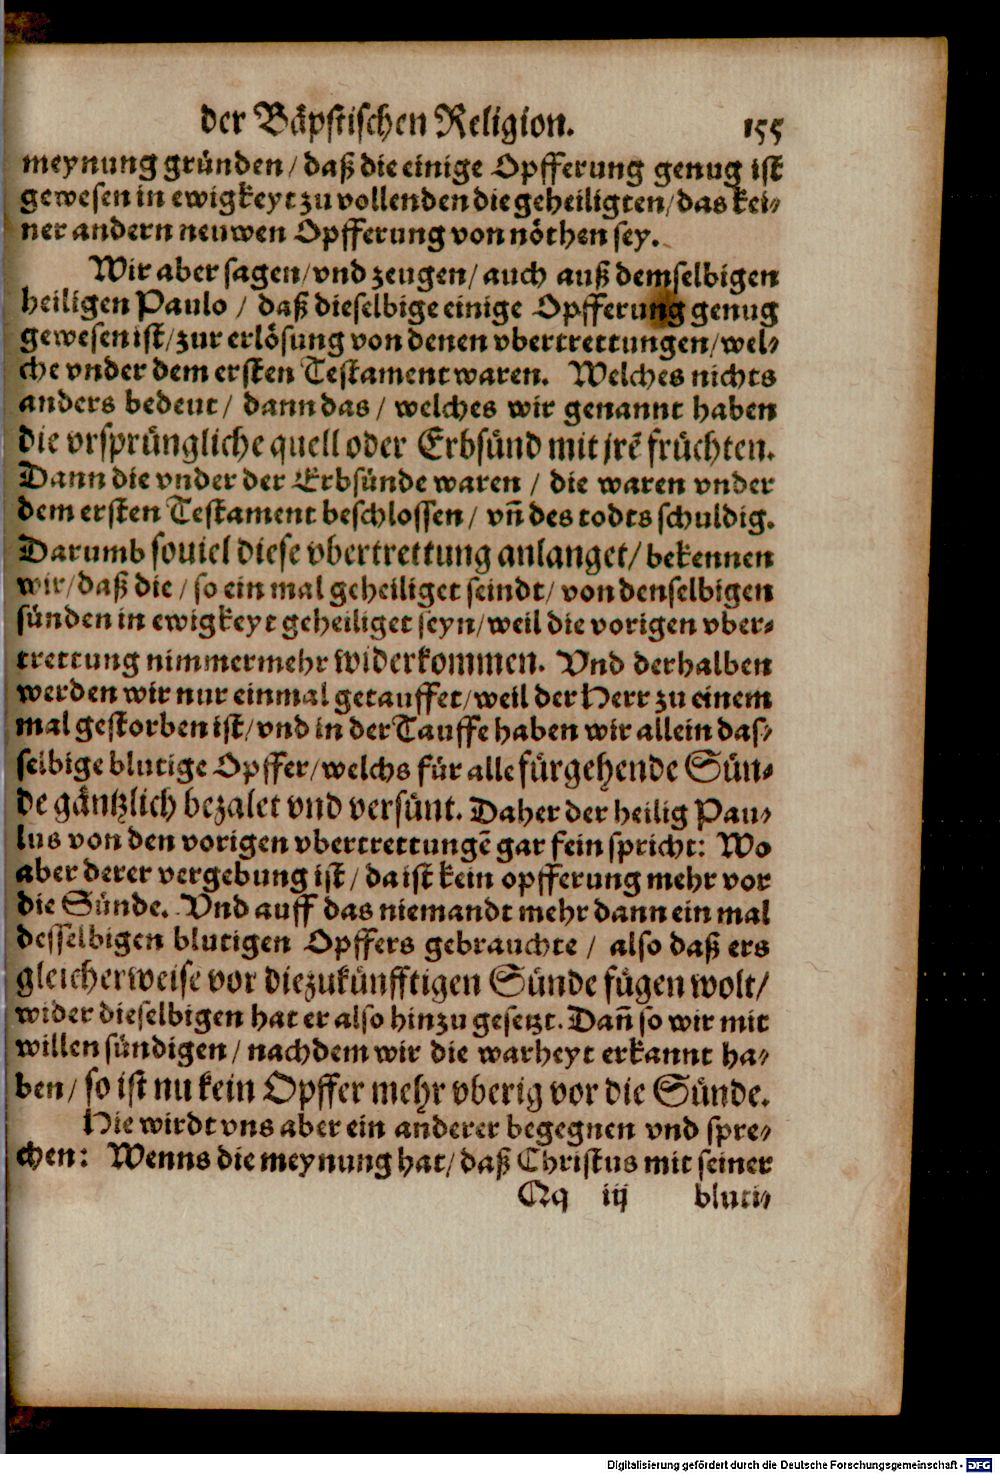 der Bäpstischen Religion. 155
meynung gründen / daß die einige Opfferung genug ist
gewesen in ewigkeyt zu vollenden die geheiligten / das kei-
ner andern neuwen Opfferung von nöthen sey.
Wir aber sagen / vnd zeugen / auch auß demselbigen
heiligen Paulo / daß dieselbige einige Opfferung genug
gewesen ist / zur erlösung von denen vbertrettungen / wel-
che vnder dem ersten Testament waren. Welches nichts
anders bedeut / dann das / welches wir genannt haben
die vrsprüngliche quell oder Erbsünd mit jrē früchten.
Dann die vnder der Erbsünde waren / die waren vnder
dem ersten Testament beschlossen / vn̄ des todts schuldig.
Darumb souiel diese vbertrettung anlanget / bekennen
wir / daß die / so ein mal geheiliget seindt / von denselbigen
sünden in ewigkeyt geheiliget seyn / weil die vorigen vber-
trettung nimmermehr widerkommen. Vnd derhalben
werden wir nur einmal getauffet / weil der Herr zu einem
mal gestorben ist / vnd in der Tauffe haben wir allein das-
selbige blutige Opffer / welchs für alle fürgehende Sün-
de gäntzlich bezalet vnd versünt. Daher der heilig Pau-
lus von den vorigen vbertrettungē gar fein spricht: Wo
aber derer vergebung ist / da ist kein opfferung mehr vor
die Sünde. Vnd auff das niemandt mehr dann ein mal
desselbigen blutigen Opffers gebrauchte / also daß ers
gleicherweise vor die zukünfftigen Sünde fügen wolt /
wider dieselbigen hat er also hinzu gesetzt. Dan̄ so wir mit
willen sündigen / nachdem wir die warheyt erkannt ha-
ben / so ist nu kein Opffer mehr vberig vor die Sünde.
Hie wirdt vns aber ein anderer begegnen vnd spre-
chen: Wenns die meynung hat / daß Christus mit seiner
Qq iij bluti-
Digitalisierung gefördert durch die Deutsche Forschungsgemeinschaft - DFG